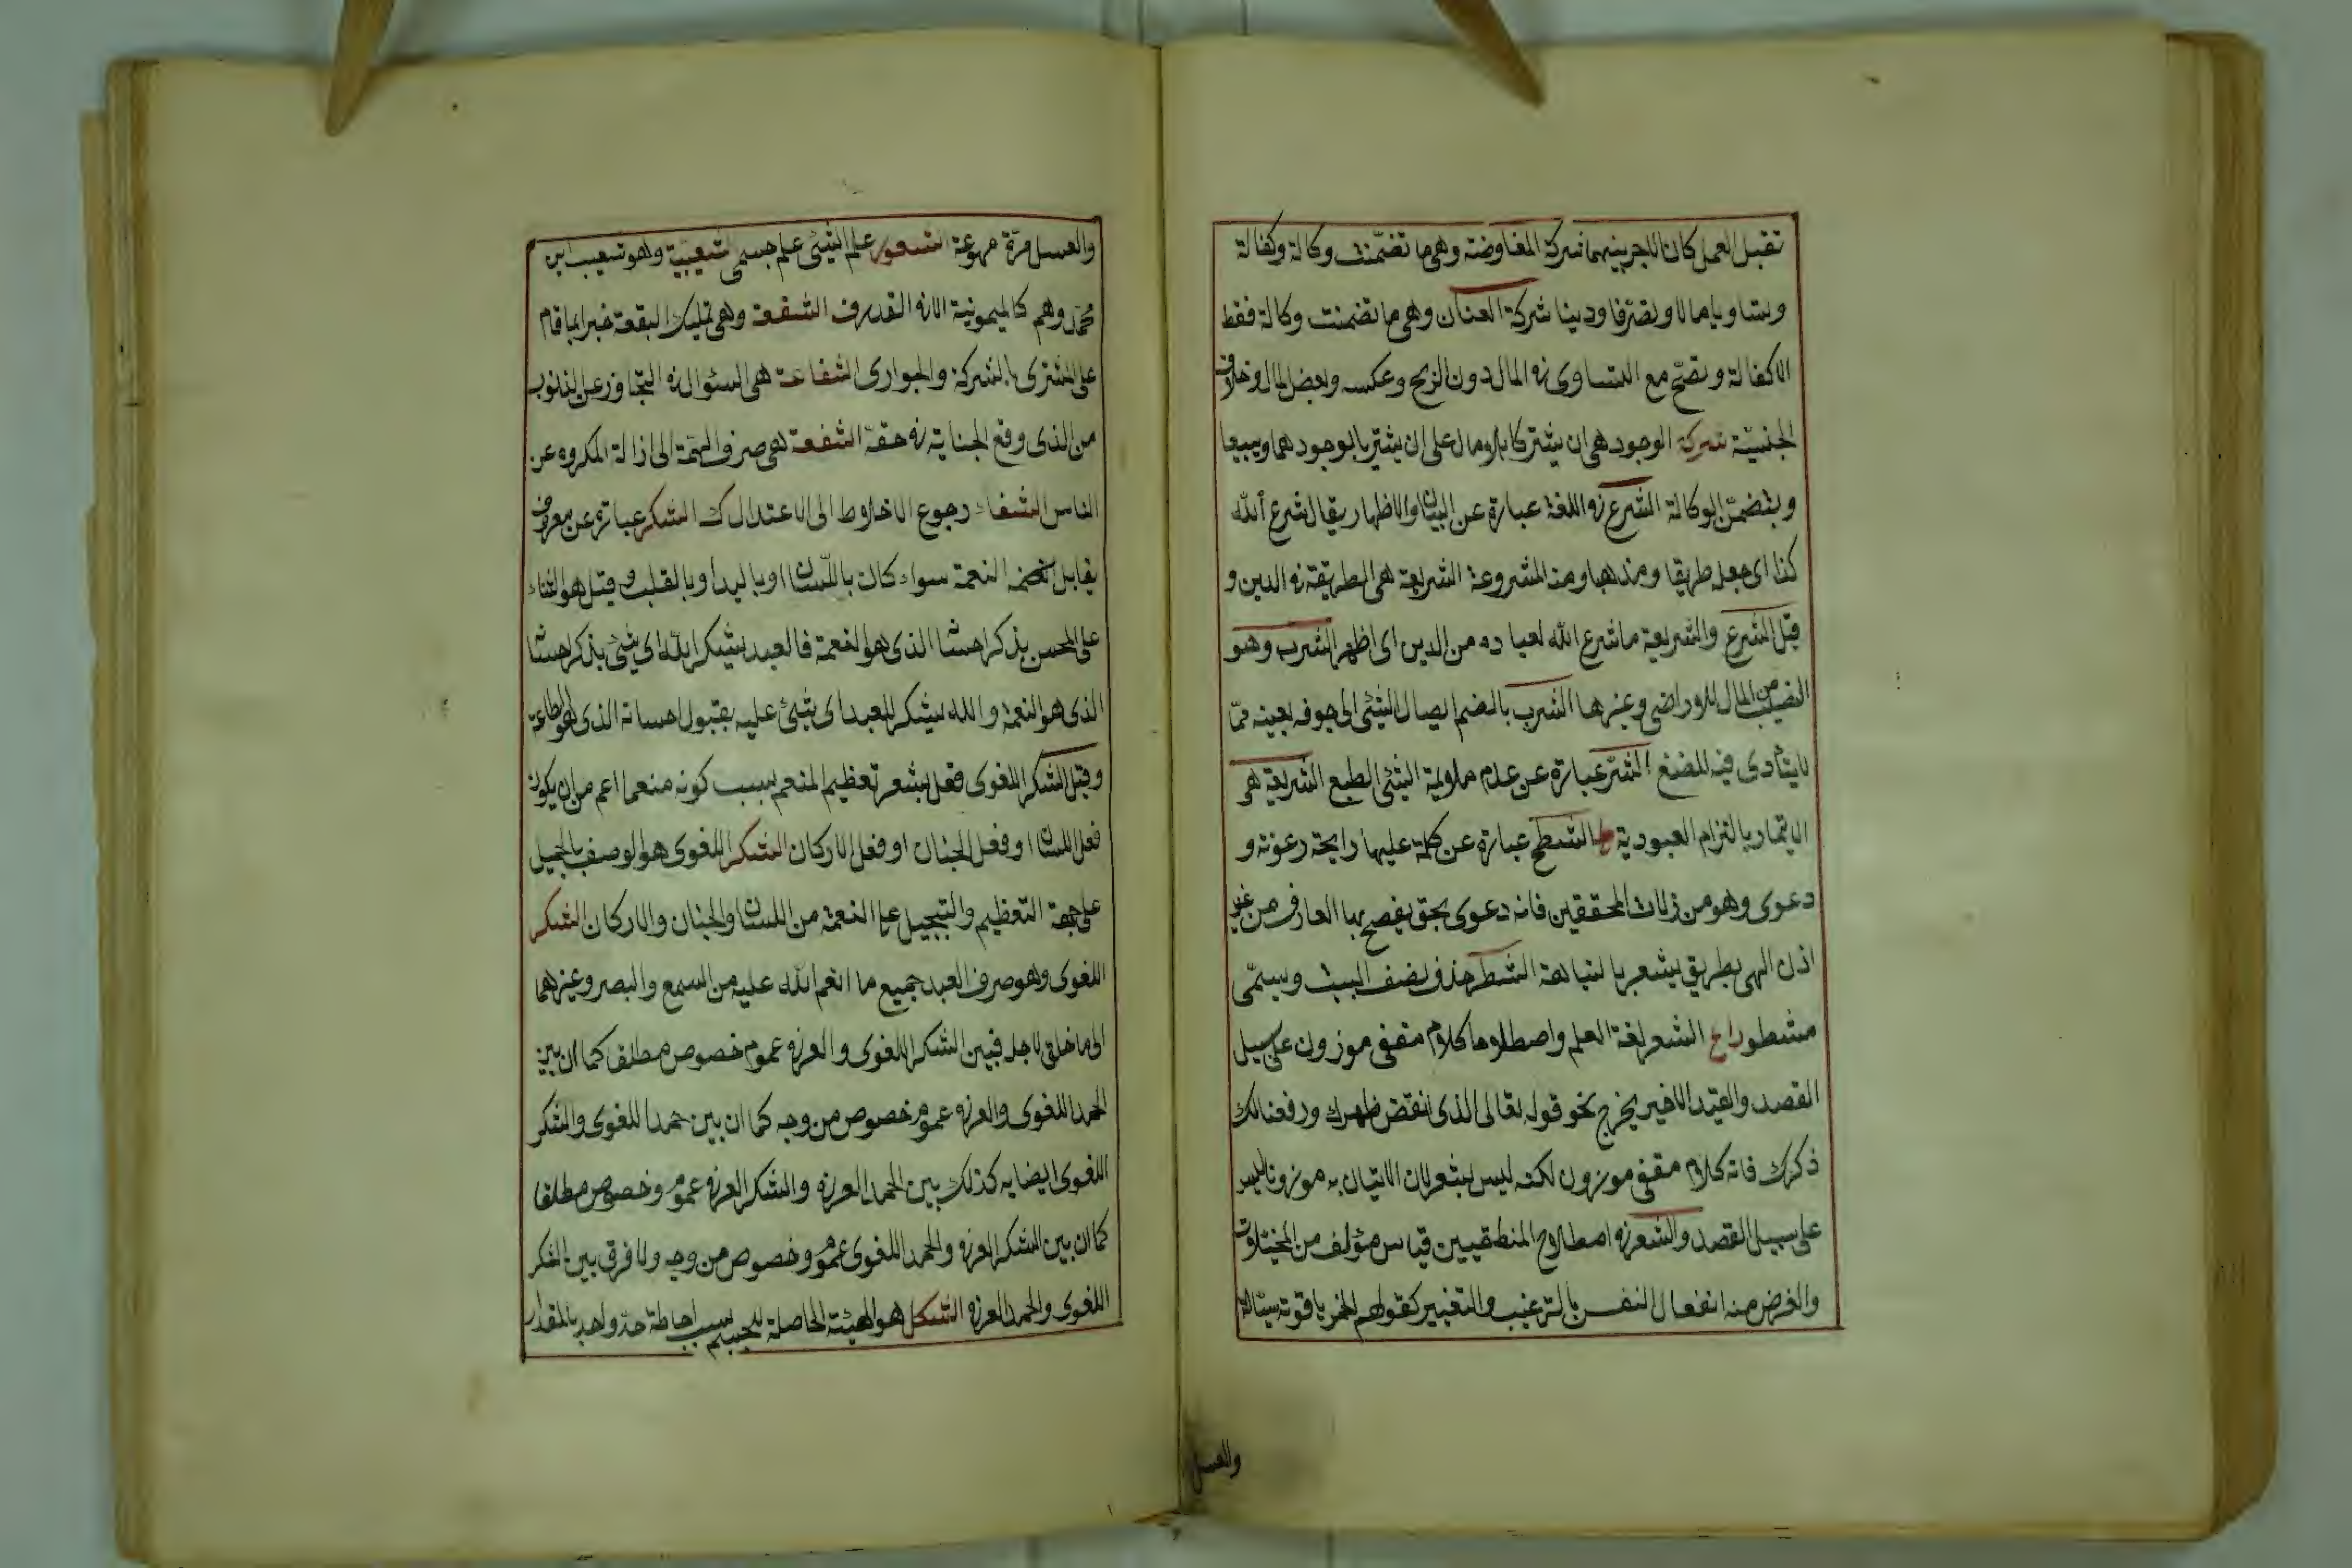 تقبل العمل كان الاجر بينهما شركة المفاوضة وهى ما تضمنت وكالة وكفالة
وتساويا مالا وتصرفا ودينا شركة العنان وهى ما تضمنت وكالة فقط
لا كفالة وتصح مع التساوى فى المال دون الربح وعكسه وبعض المال وخلاف
الجنسية شركة الوجوه هى ان يشتركا بلا مال على ان يشتريا بوجوههما ويبيعا
ويتضمن الوكالة الشرع فى اللغة عبارة عن البيان والاظهار يقال شرع الله
كذا اى جعل طريقا ومذهبا ومنه المشروعة الشريعة هى الطريقة فى الدين و
قيل الشرع والشريعة ما شرع الله لعباده من الدين اى اظهر الشرب وهو
النصيب من المال للاراضى وغيرها الشرب بالضم ايصال الشئ الى جوفه بعينه مما
لا يتأدى فيه المضغ الشر عبارة عن عدم ملايمة الشئ الطبع الشريعة هو
الايتمار بالتزام العبودية ط الشطح عبارة عن كلمة عليها رايحة رعونة و
دعوى وهو من زلات المحققين فانه دعوى بحق يفصح بها العارف من غير
اذن الهى بطريق يشعر بالنباهة الشطر حذف نصف البيت ويسمى
مشطورا ع الشعر لغة العلم واصطلاحا كلام مقفى موزون على سبيل
القصد والقيد الاخير يخرج نحو قوله تعالى الذى انقض ظهرك ورفعنا لك
ذكرك فانه كلام مقفى موزون لكنه ليس بشعر لان الاتيان به موزونا ليس
على سبيل القصد والشعر فى اصطلاح المنطقيين قياس مؤلف من المخيلات
والغرض منه انفعال النفس بالترغيب والتنفير كقولهم الخمر ياقوتة سيالة
والعسل
والعسل مرة مهوعة الشعور علم الشئ علم جسمى شعيبية وهو شعيب بن
محمد وهم كالميمونية الا فى القدر ف الشفعة وهى تمليك البقعة جبرا بما قام
على المشترى بالشركة والجوار الشفاعة هى السئوال فى التجاوز عن الذنوب
من الذى وقع الجناية فى حقه الشفعة هى صرف الهمة الى ازالة المكروه عن
الناس الشفاء رجوع الاخلاط الى الاعتدال ك الشكر عبارة عن معروف
يقابل النعمة سواء كان باللسان او باليد او بالقلب وقيل هو الثناء
على المحسن بذكر احسانه الذى هو النعمة فالعبد يشكر الله اى يثنى بذكر احسانه
الذى هو النعمة والله يشكر العبد اى يثنى عليه بقبول احسانه الذى هو طاعة
وقيل الشكر اللغوى فعل يشعر تعظيم المنعم بسبب كونه منعما اعم من ان يكون
فعل اللسان او فعل الجنان او فعل الاركان الشكر اللغوى هو الوصف بالجميل
على جهة التعظيم والتبجيل على النعمة من اللسان والجنان والاركان الشكر
اللغوى وهو صرف العبد جميع ما انعم الله عليه من السمع والبصر وغيرهما
الى ما خلق لاجله فبين الشكر اللغوى والعرفى عموم خصوص مطلق كما ان بين
الحمد اللغوى والعرفى عموم خصوص من وجه كما ان بين حمد اللغوى والشكر
اللغوى ايضا به كذلك بين الحمد العرفى والشكر العرفى عموم وخصوص مطلقا
كما ان بين الشكر العرفى والحمد اللغوى عموم وخصوص من وجه ولا فرق بين الشكر
اللغوى والحمد العرفى الشكل هو الهيئة الحاصلة للجسم بسبب احاطة حد واحد بالمقدار